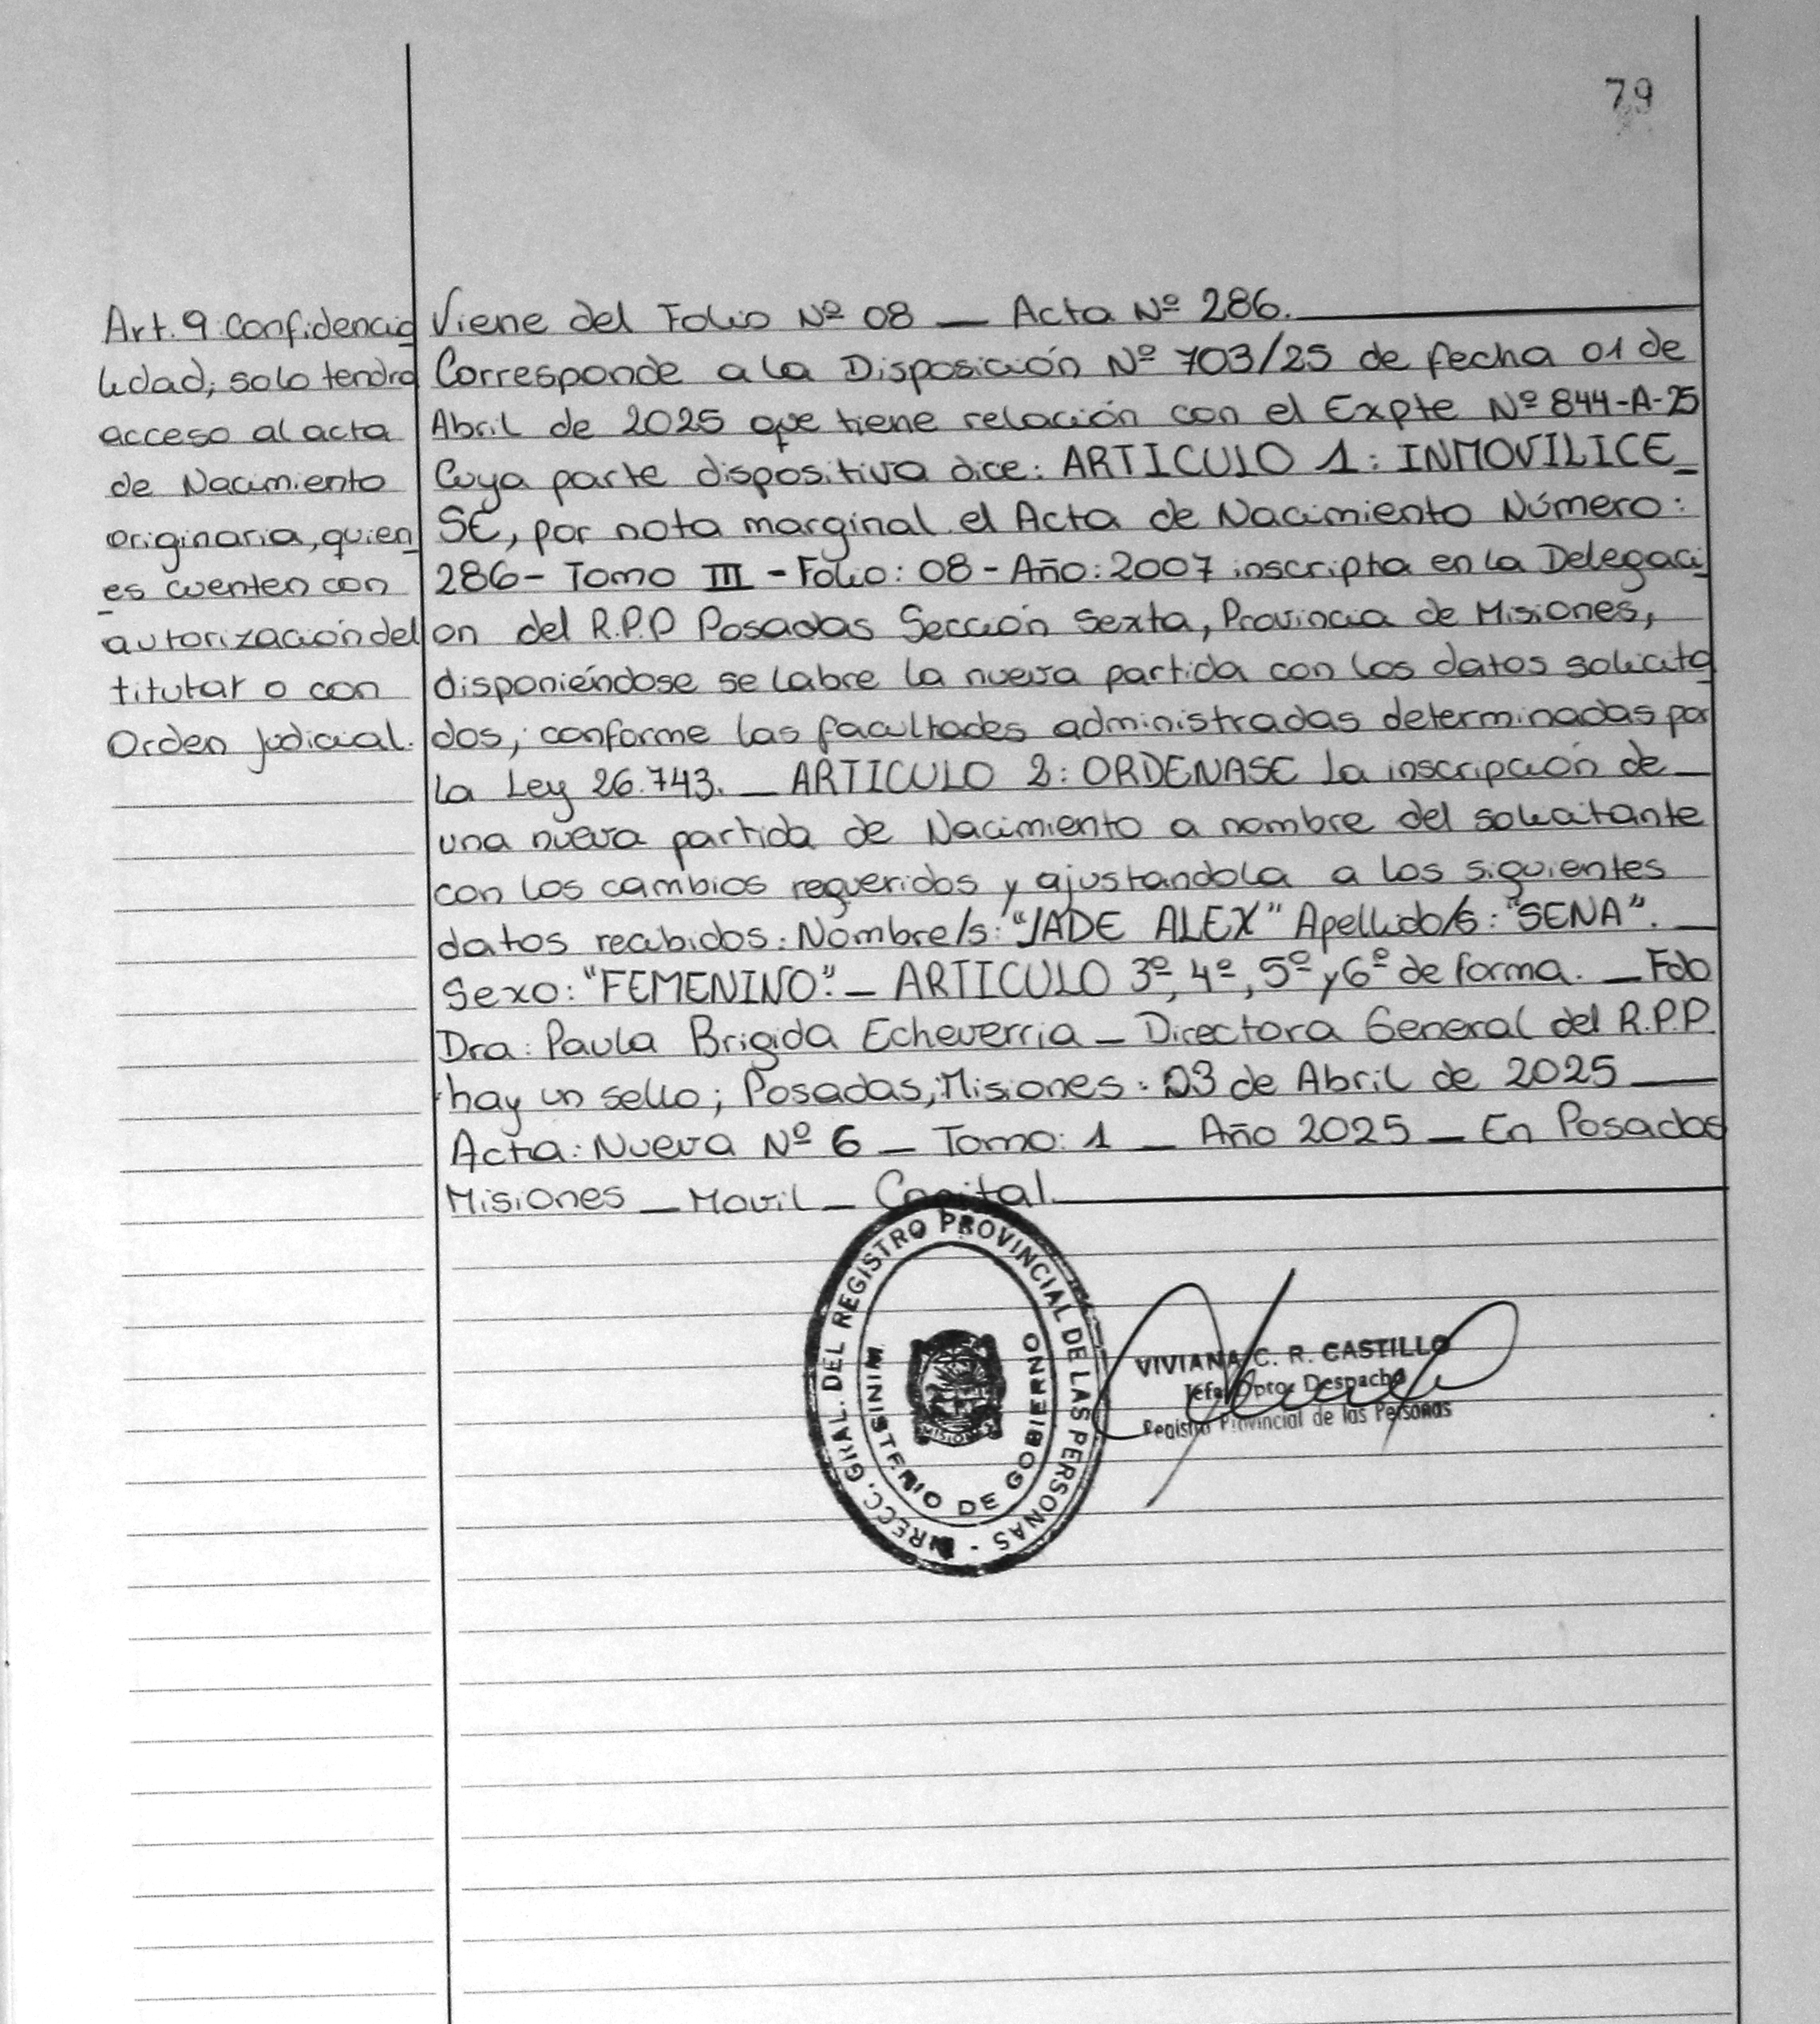 79
Art. 9 Confidencia
lidad; solo tendra
acceso al acta
de Nacimiento
originaria, quien
es cuenten con
autorización del
titutar o con
Orden Judicial.
Viene del Folio Nº 08 _ Acta Nº 286.
Corresponde a la Disposición Nº 703/25 de fecha 01 de
Abril de 2025 que tiene relación con el Expte Nº 844-A-25
Cuya parte dispositiva dice: ARTICULO 1: INMOVILICE_
SE, por nota marginal el Acta de Nacimiento Número:
286- Tomo III - Folio: 08 - Año: 2007 inscripta en la Delegaci
on del R.P.P Posadas Sección Sexta, Provincia de Misiones,
disponiéndose se labre la nueva partida con los datos solicita
dos, conforme las facultades administradas determinadas por
la Ley 26.743. _ ARTICULO 2: ORDENASE la inscripción de
una nueva partida de Nacimiento a nombre del solicitante
con los cambios requeridos y ajustandola a los siguientes
datos recibidos: Nombre/s: "JADE ALEX" Apellido/s: "SENA". _
Sexo: "FEMENINO". _ ARTICULO 3º, 4º, 5º y 6º de forma. _ Fdo
Dra: Paula Brigida Echeverria _ Directora General del R.P.P
hay un sello; Posadas, Misiones: 03 de Abril de 2025
Acta: Nueva Nº 6 _ Tomo: 1 _ Año 2025 _ En Posadas
Misiones _ Movil _ Capital.
DIRECC. GRAL. DEL REGISTRO PROVINCIAL DE LAS PERSONAS -
MINISTERIO DE GOBIERNO
MISIONES
VIVIANA C. R. CASTILLO
Jefa Dpto. Despacho
Registro Provincial de las Personas